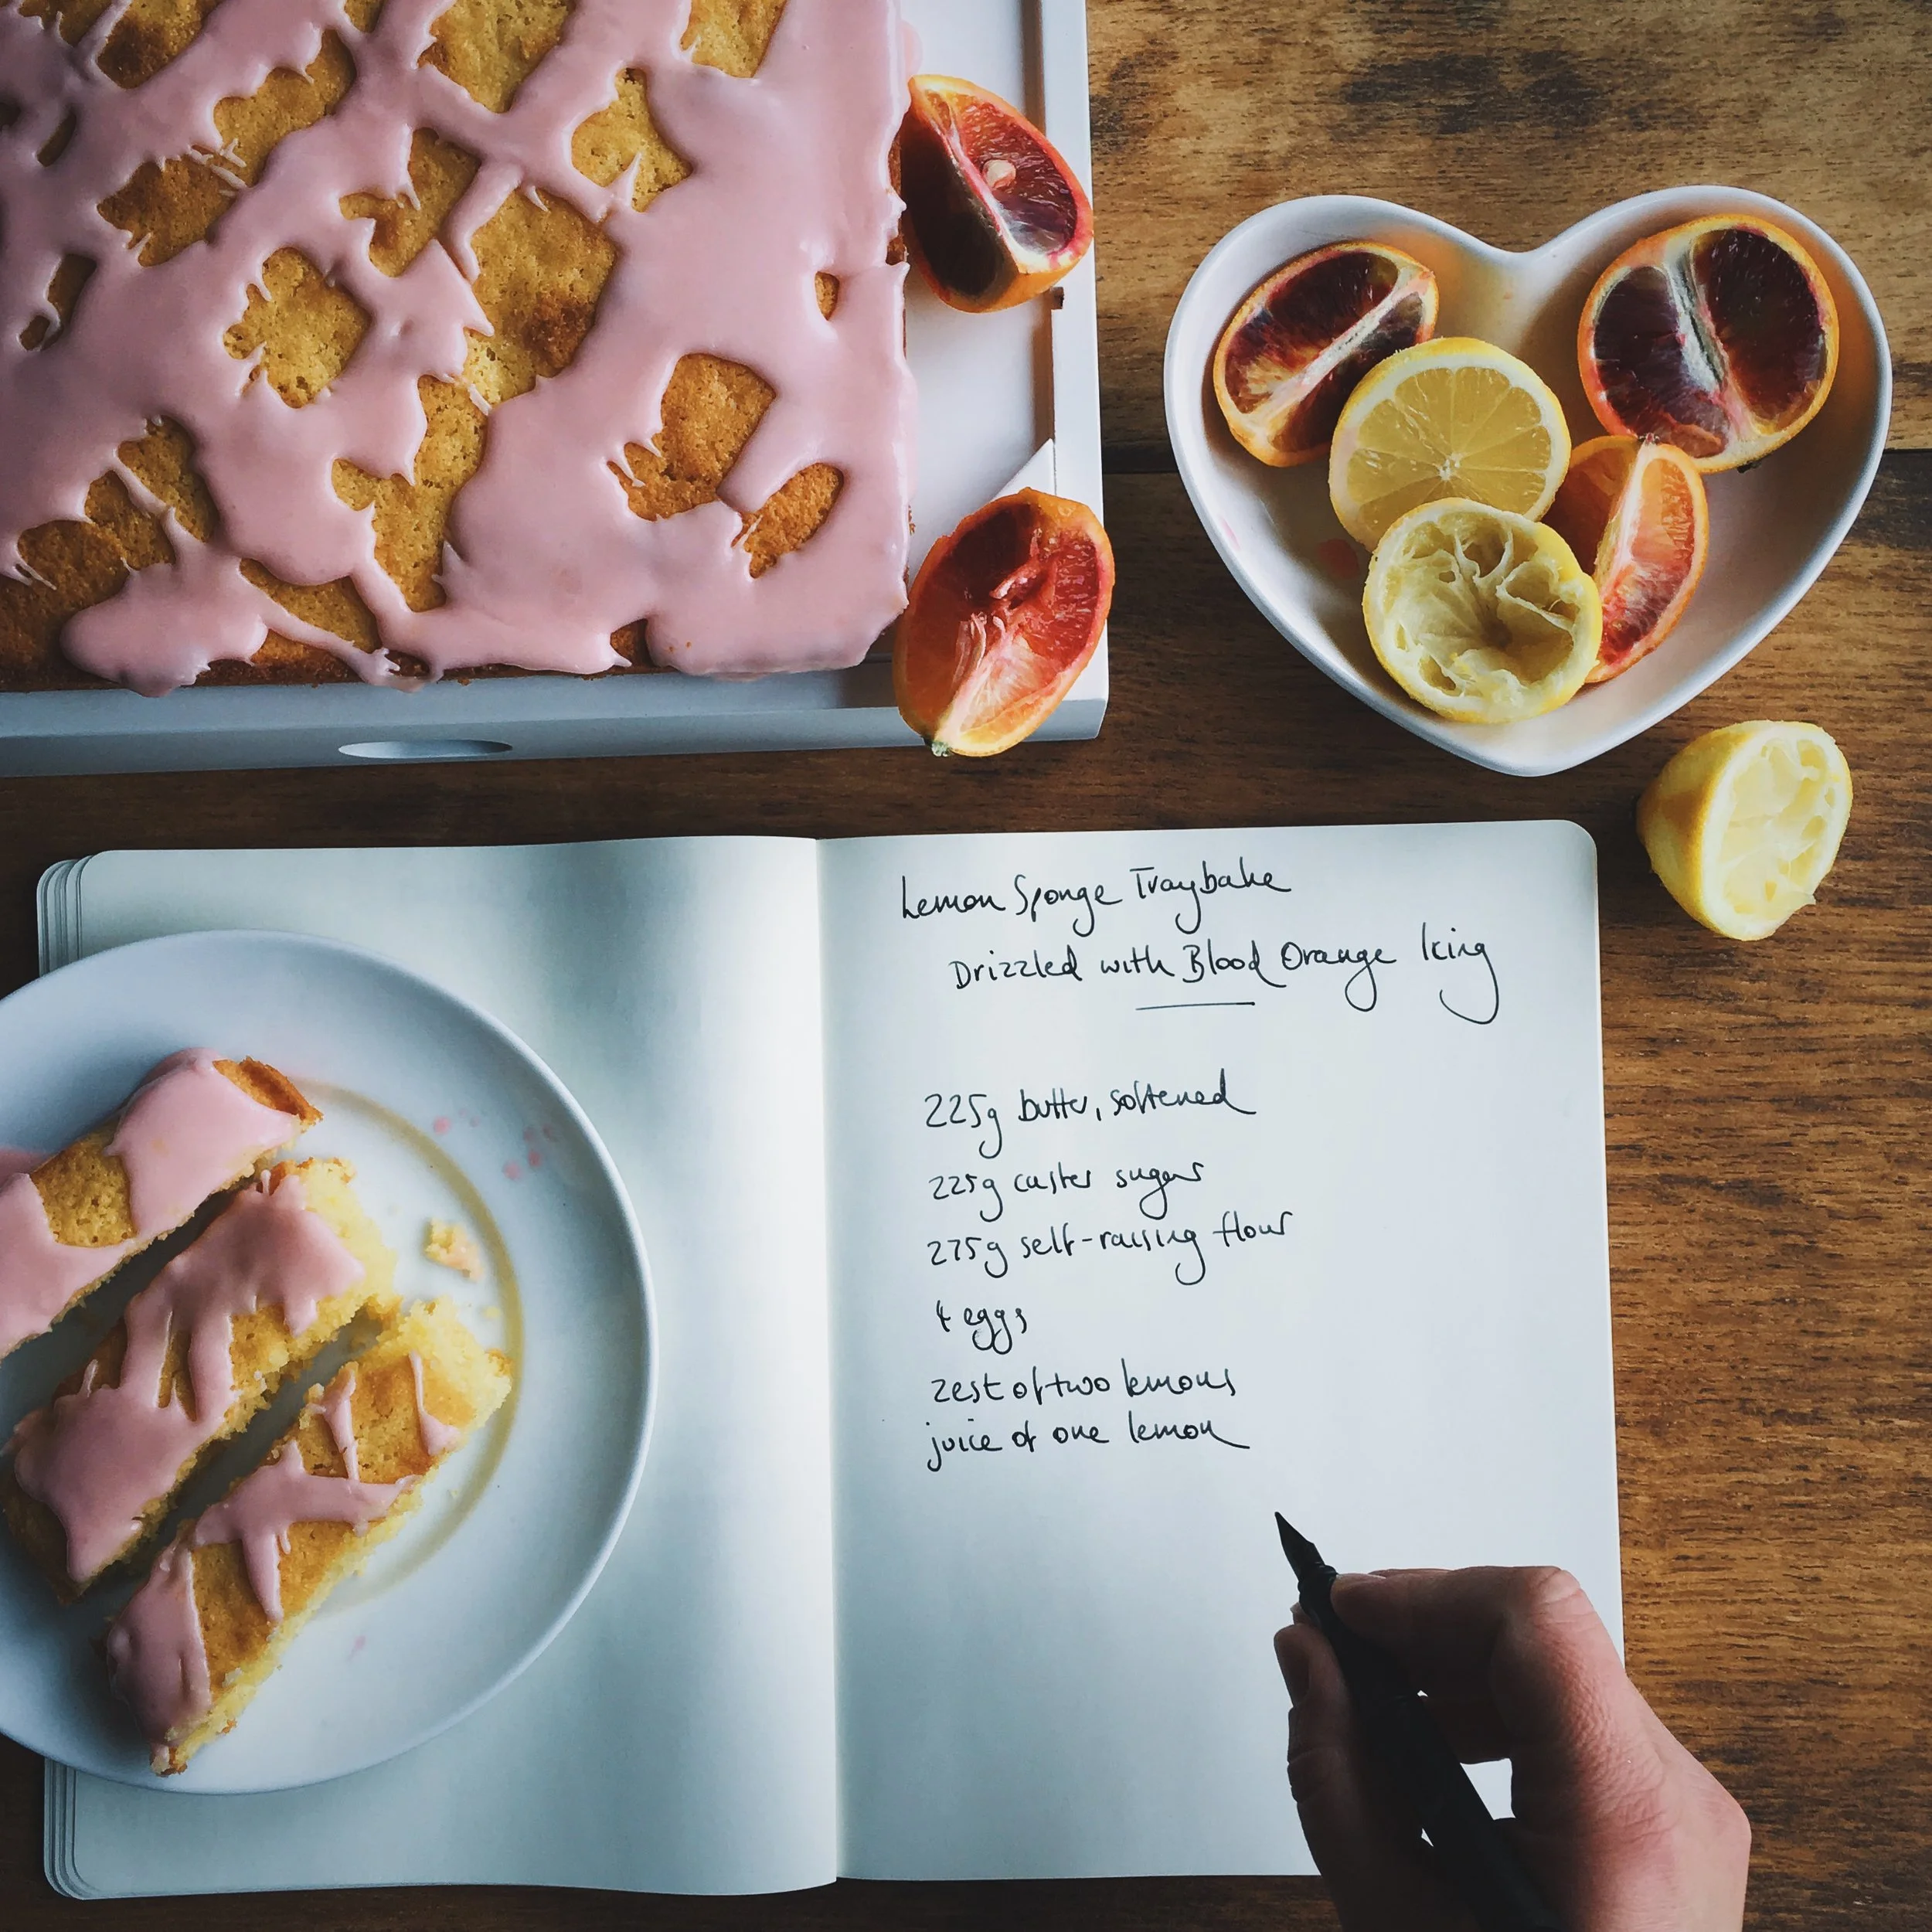 Lemon Sponge Traybake
Drizzled with Blood Orange Icing
225g butter, softened
225g caster sugar
275g self-raising flour
4 eggs
zest of two lemons
juice of one lemon